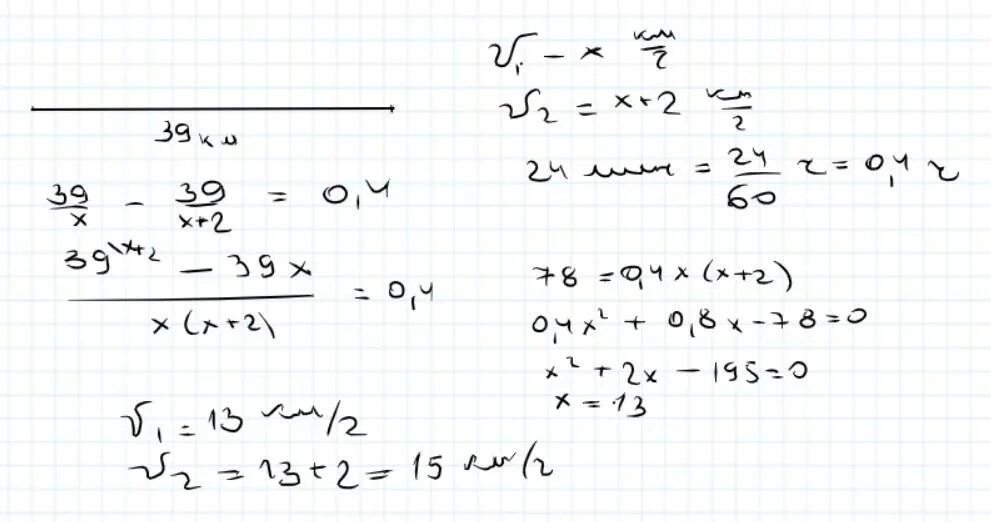 v₁ – x км/ч
v₂ = x+2 км/ч
24 мин = 24/60 ч = 0,4 ч
39 км
39/x – 39/(x+2) = 0,4
(39\x+2 – 39x)/(x(x+2)) = 0,4
78 = 0,4x(x+2)
0,4x² + 0,8x – 78 = 0
x² + 2x – 195 = 0
x = 13
v₁ = 13 км/ч
v₂ = 13+2 = 15 км/ч